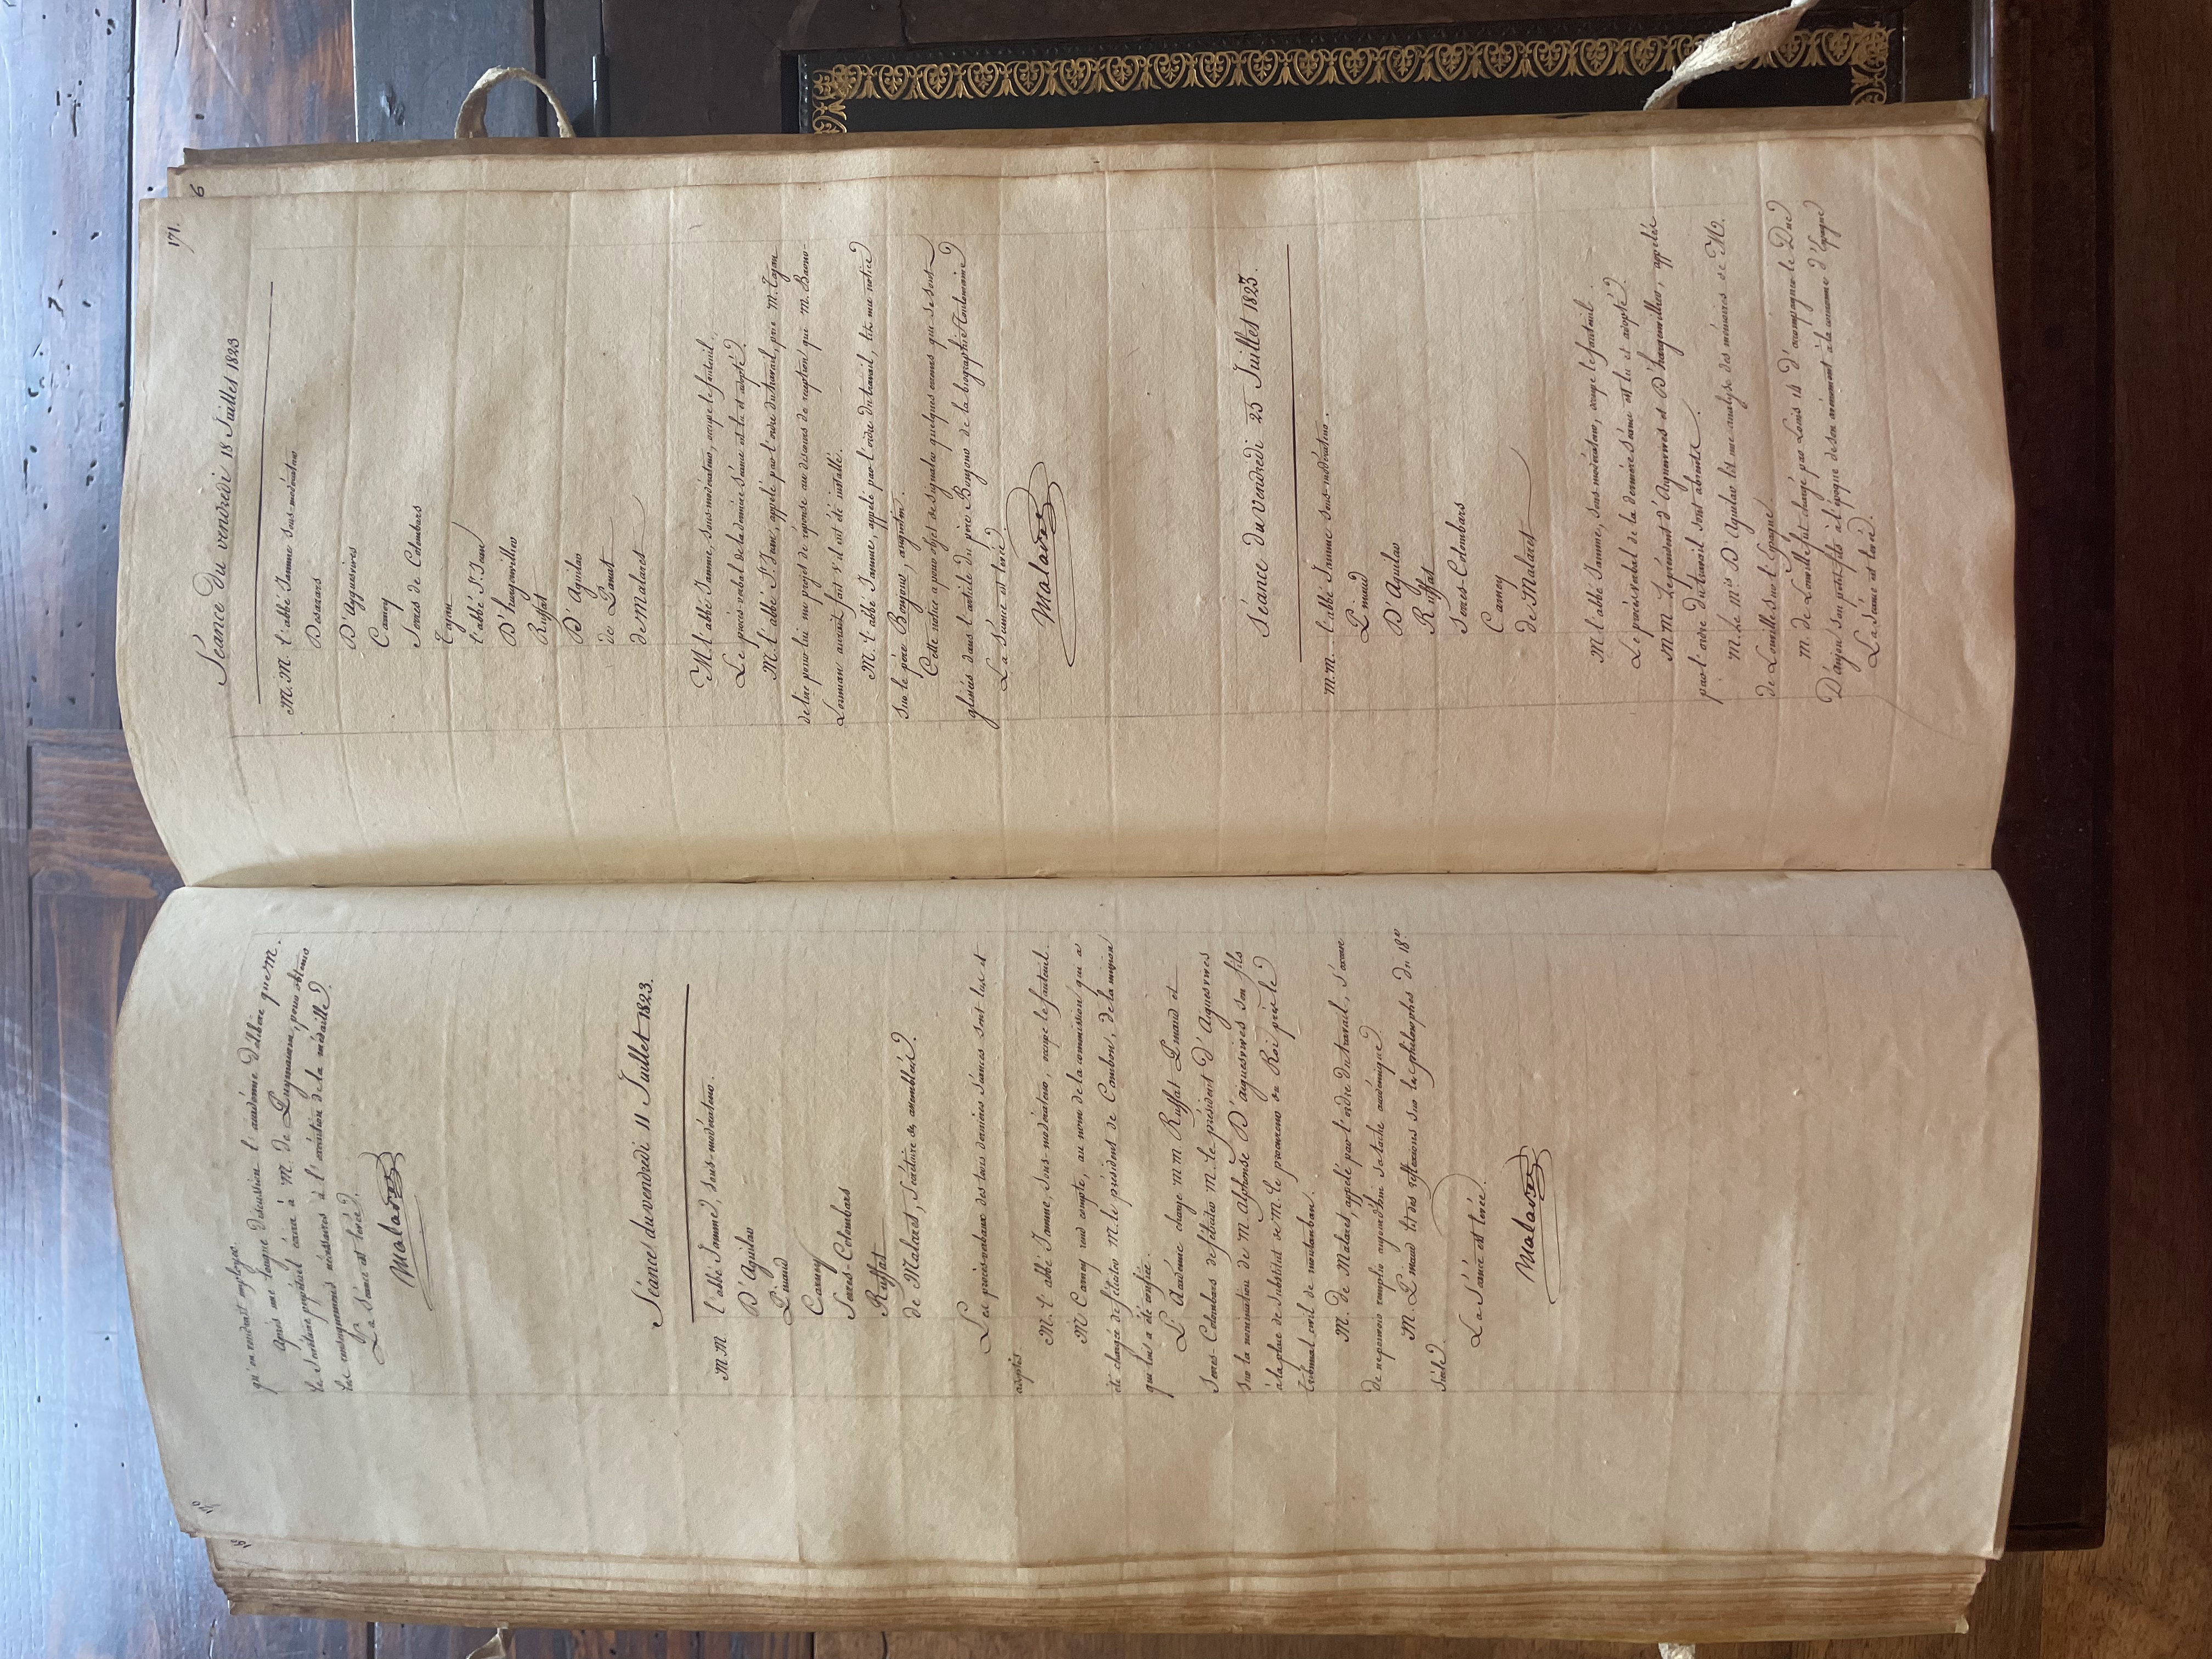 170
qu'on voudrait employer.
Après une longue discussion l'académie délibère que M.
le Secrétaire perpétuel écrira à M. de Puymaurin, pour obtenir
les renseignemens nécessaires à l'exécution de la médaille.
La Séance est levée.
Malaret
Séance du vendredi 11 Juillet 1823.
MM l'abbé Jamme, sous-modérateur.
D'Aguilar
Pinaud
Carney
Serres-Colombars
Ruffat
de Malaret, Secrétaire des assemblées.
Les procès-verbaux des trois dernières séances sont lus et
adoptés
M. l'abbé Jamme, sous-modérateur, occupe le fauteuil.
M Carney rend compte, au nom de la commission qui a
été chargée de féliciter M. le président de Cambon, de la mission
qui lui a été confiée.
L'Académie charge MM Ruffat Pinaud et
Serres-Colombars de féliciter M. le président D'Aiguesvives
sur la nomination de M. Alphonse D'aiguesvives son fils
à la place de Substitut de M. le procureur du Roi près le
tribunal civil de montauban.
M. de Malaret, appelé par l'ordre du travail, s'excuse
de ne pouvoir remplir aujourd'hui sa tache académique.
M. Pinaud lit des réflexions sur les philosophes du 18e
Siècle.
La Séance est levée.
Malaret
171.
6
Séance du vendredi 18 Juillet 1823
M.M. l'abbé Jamme sous-modérateur
Desazars
D'Aiguesvives
Carney
Serres de Colombars
Tajan
l'abbé St. Jean
D'hargenvillier
Ruffat
D'Aguilar
de Panat
de Malaret
M. l'abbé Jamme, sous-modérateur, occupe le fauteuil.
Le procès-verbal de la dernière Séance est lu et adopté.
M. l'abbé St. Jean, appelé par l'ordre du travail, prie M. Tajan
de lire pour lui une projet de réponse au discours de réception que M. Baour-
Lormian aurait fait s'il eut été installé.
M. l'abbé Jamme, appelé par l'ordre du travail, lit une notice
sur le père Bonjour, augustin.
Cette notice a pour objet de signaler quelques erreurs qui se sont
glissées dans l'article du père Bonjour de la biographie Toulousaine
La Séance est levée.
Malaret
Séance du vendredi 25 Juillet 1823.
M.M. l'abbé Jamme sous-modérateur.
Pinaud
D'Aguilar
Ruffat
Serres-Colombars
Carney
de Malaret
M. l'abbé Jamme, sous-modérateur, occupe le fauteuil.
Le procès-verbal de la dernière Séance est lu et adopté.
MM. Le président d'Aiguesvives et D'hargenvillier, appelés
par l'ordre du travail sont absents.
M. Le Mis D'Aguilar lit une analyse des mémoires de M.
de Louville sur l'Espagne.
M. de Louville fut chargé par Louis 14 D'accompagner le Duc
D'anjou son petit fils à l'époque de son avènement à la couronne d'Espagne
La Séance est levée.